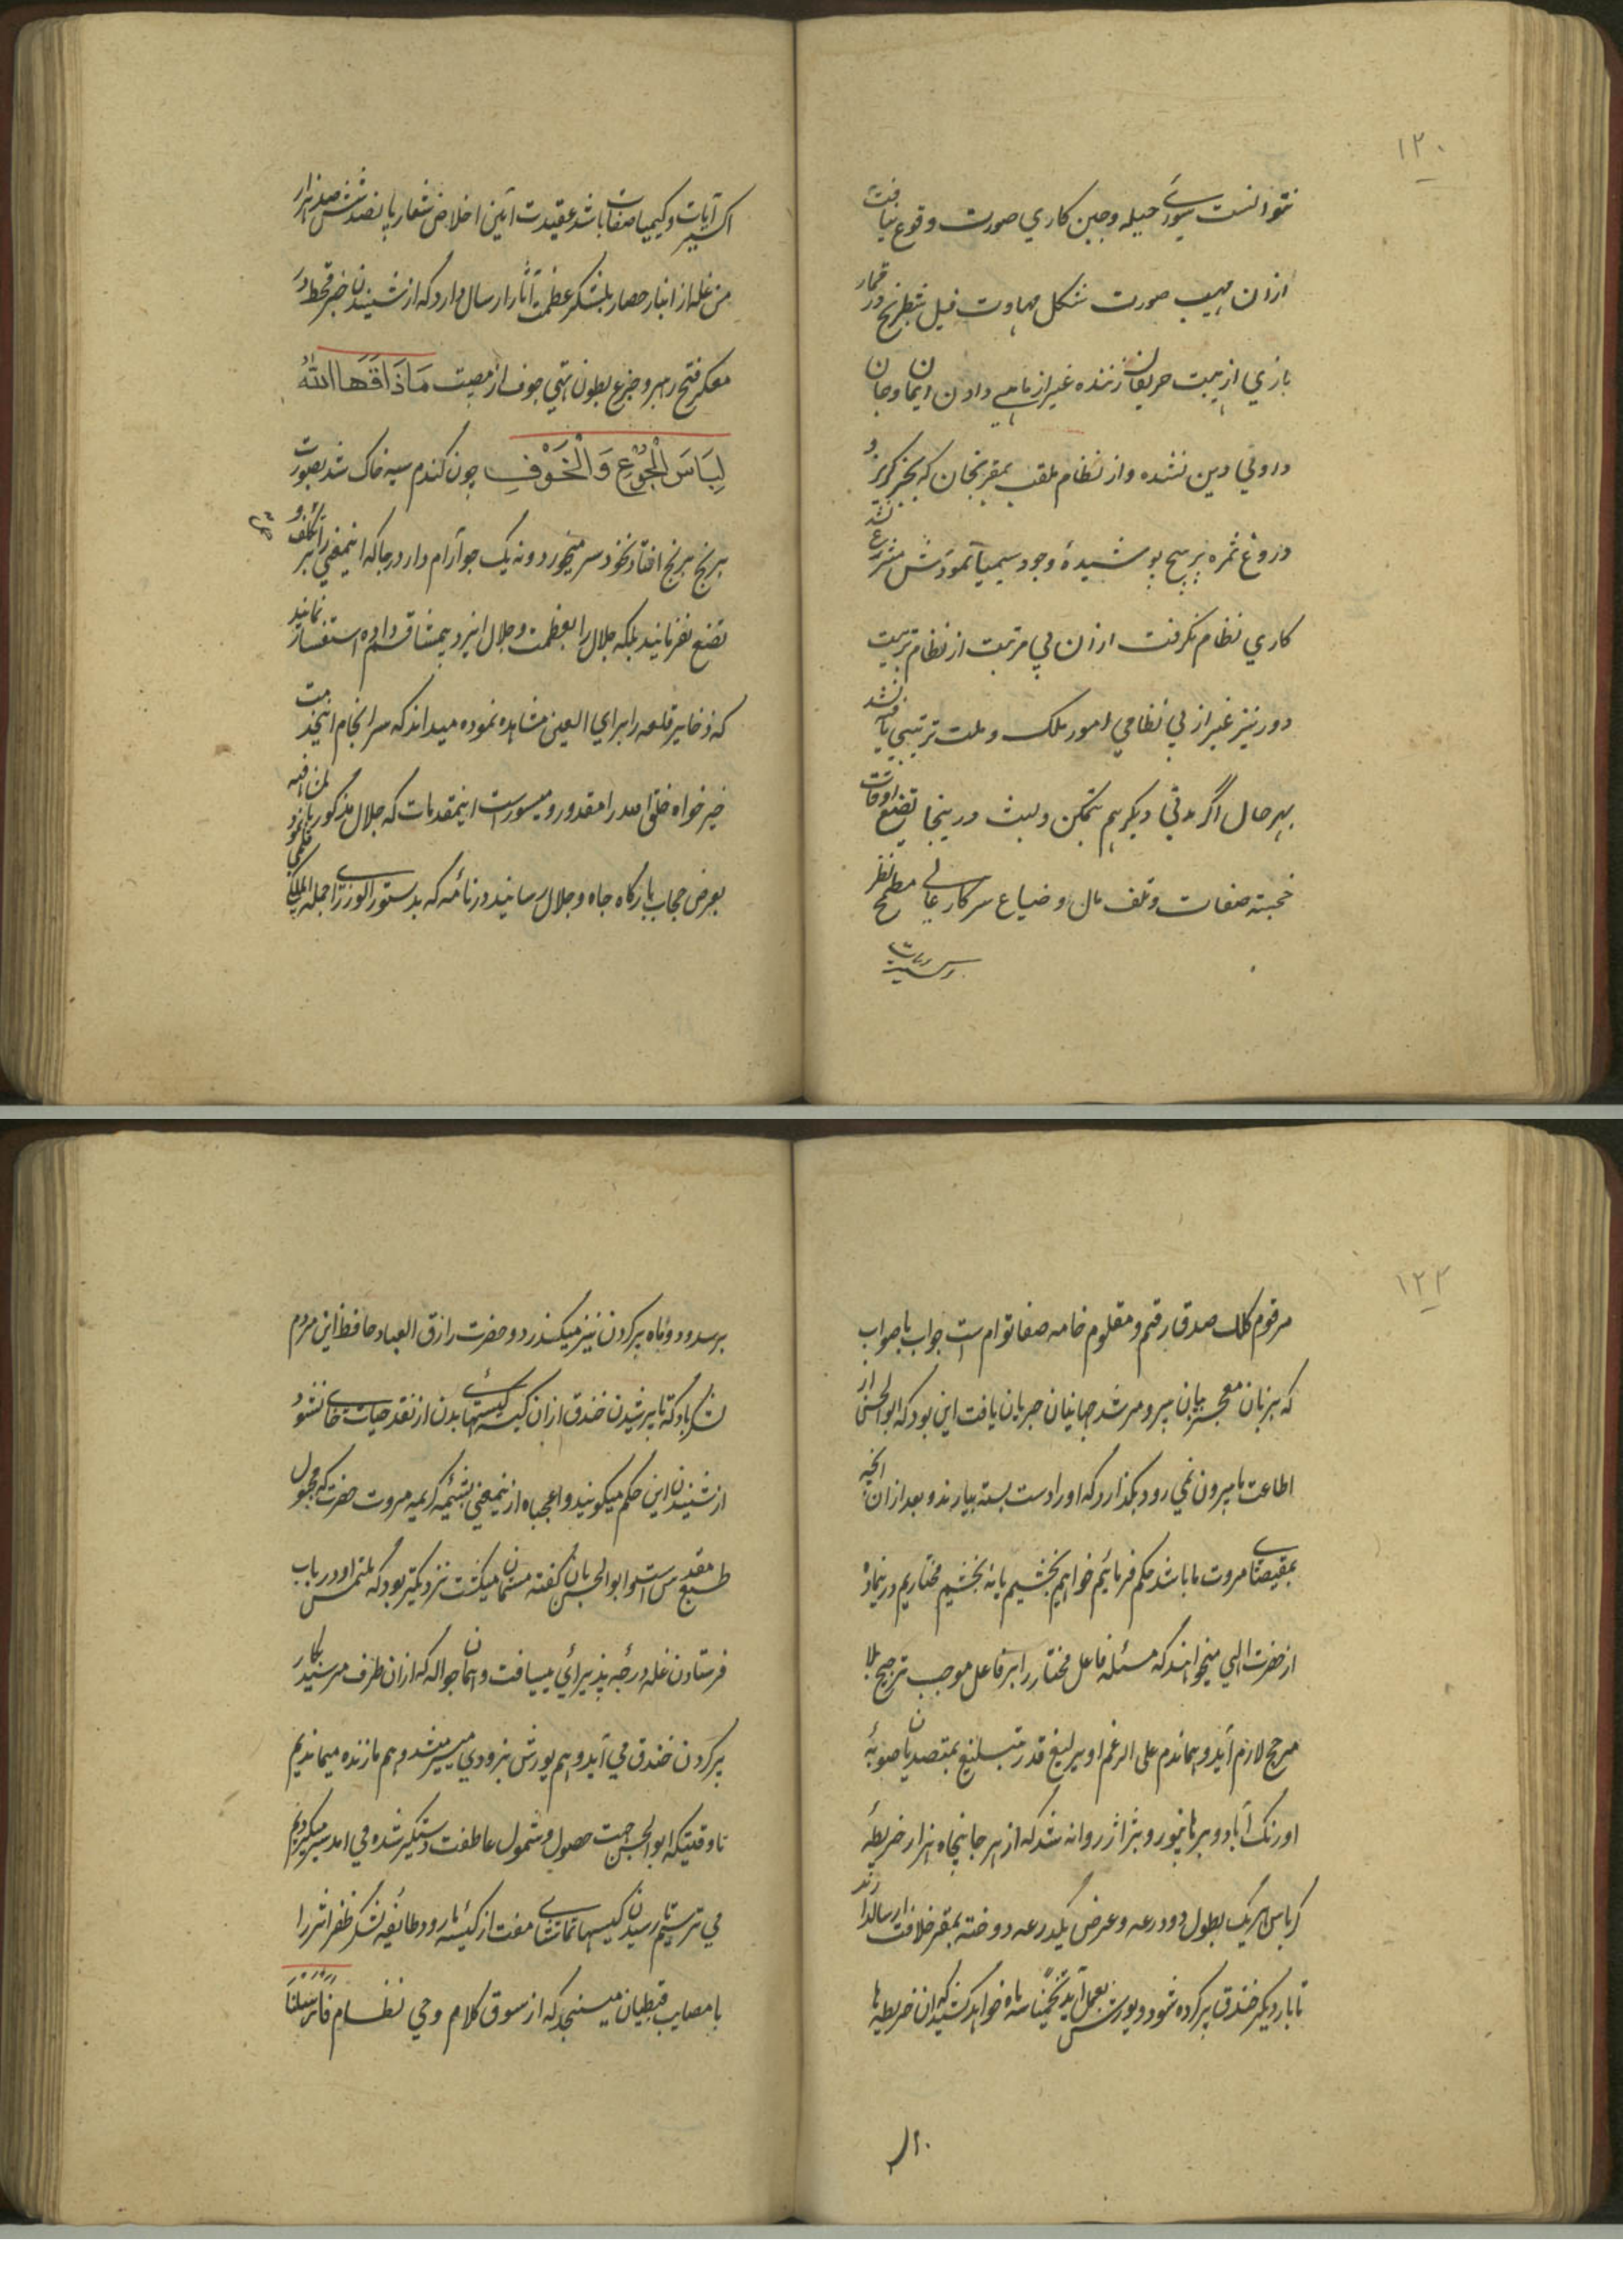 ١٢٠
نتوانست بسوزائے حیله وجین کاري صورت وقوع نیافت
ازان مهیب صورت شکل مهاوت فیل شطرنج در قمار
بازي از هیبت حریفان زننده غیر از ما هے دادن ایمان وجان
داوئي دین نشده و از نظام ملقب بمقربخان که بجز گریز و
دروغ ثمره پوشیدهٔ وجود سیمیا نمودش مشرع نشد
کاري نظام نگرفت ازان بي مرتبت از نظام تربیت
دور نیز غیر از بي نظامي امور ملک وملت ترتیبي نیافته شد
بهرحال اگر مدتي دیگر هم تمکن ولبث در اینجا تضیع اوقات
خجسته صفات وتلف مال وضیاع سرکار عالي مطمح نظر
اکسیر آیات وکیمیا صفات باشد عقیدت آیین اخلاص شعار پانصد ششصد هزار
من غله از انبار حصار بلشکر عظمت آثار ارسال دارد که از شنیدن خبر قحط در
معسکر فتح رهبر وجزع بطون تهي جوف از مصیبت مَاذَاقَهَا اللّٰهُ
لِبَاسَ الْجُوْعِ وَالْخَوْفِ چون گندم سینه چاک شد بصورت
برنج برنج افتاد نخود سر میخورد ونه یک جو آرام دارد رجا که اینمعني را بر تکلف و
تضنع نفرمایند بلکه جلال را بعظمت وجلال ایزد بیمشاق قسم داده استفسار نمایند
که ذخایر قلعه را برای العین مشاهده نموده میداند که سرانجام اینخدمت
خیرخواه خلق الله را مقدور ومیسور است اینمقدمات که جلال مذکور بالمشافهه
بعرض حجاب بارگاه جاه وجلال رسانید در نامه که بدستور الوزرائے جملة الملکي
١٢٢
مرقوم کلک صدق رقم ومقلوم خامه صفا توام است جواب باصواب
که بزبان معجز بیان پیر ومرشد جهانیان جریان یافت این بود که ابوالحسن از
اطاعت ما بیرون نمي رود بگذارد که اورا دست بسته بیارند وبعد ازان آنچه
بمقیضاے مروت ما باشد حکم فرمائیم خواهیم بخشیم یا نه بخشیم مختاریم درینماده
از حضرت الهي میخواهند که مسئله فاعل مختار را بر فاعل موجب ترجیح بلا
مرجح لازم آید وهماندم علی الرغم او یرلیغ قدر تبلیغ بمتصدیان صوبهٔ
اورنگ آباد وبرهانپور وبرار روانه شد که از هر جا پنجاه هزار خریطهٔ
کرباس هریک بطول دو درعه وعرض یکدرعه دوخته بمقر خلافت ارسال دارند
تا بار دیگر خندق پر کرده شود ویورش بعمل آید تخمیناً سه ماه خواهد کشید که ان خریطه ها
برسد ودو ماه پر کردن نیز میگذرد وحضرت رازق العباد حافظ این مردم
لشکر باد که تا پر شدن خندق ازان کیسه کیسهائے بدن از نقد حیات خالے نشود
از شنیدن این حکم میگویند واعجباه ازینمعني بشیمهٔ کریمه مروت حضرت که مجبول
طبع مقدس است وابوالحسن بان گفته مستمان میگشت نزدیکتر بود که ملتمس او در باب
فرستادن غله درجه پذیرائي مییافت وهمان جواله که ازان طرف میرسید بکار
پر کردن خندق مي آید وهم یورش بزودي میسر میشد وهم ما زنده میماندیم
تا وقتیکه ابوالحسن جهت حصول وشمول عاطفت دستگیر شده مي آمد سیر میکردیم
مي ترسیم تا رسیدن کیسها تماشاے مفت از کیسهٔ ما رود وطایفهٔ لشکر ظفر اثر را
با مصایب قبطیان میسنجد که از سوق کلام وحي نظام فَاَرْسَلْنَا